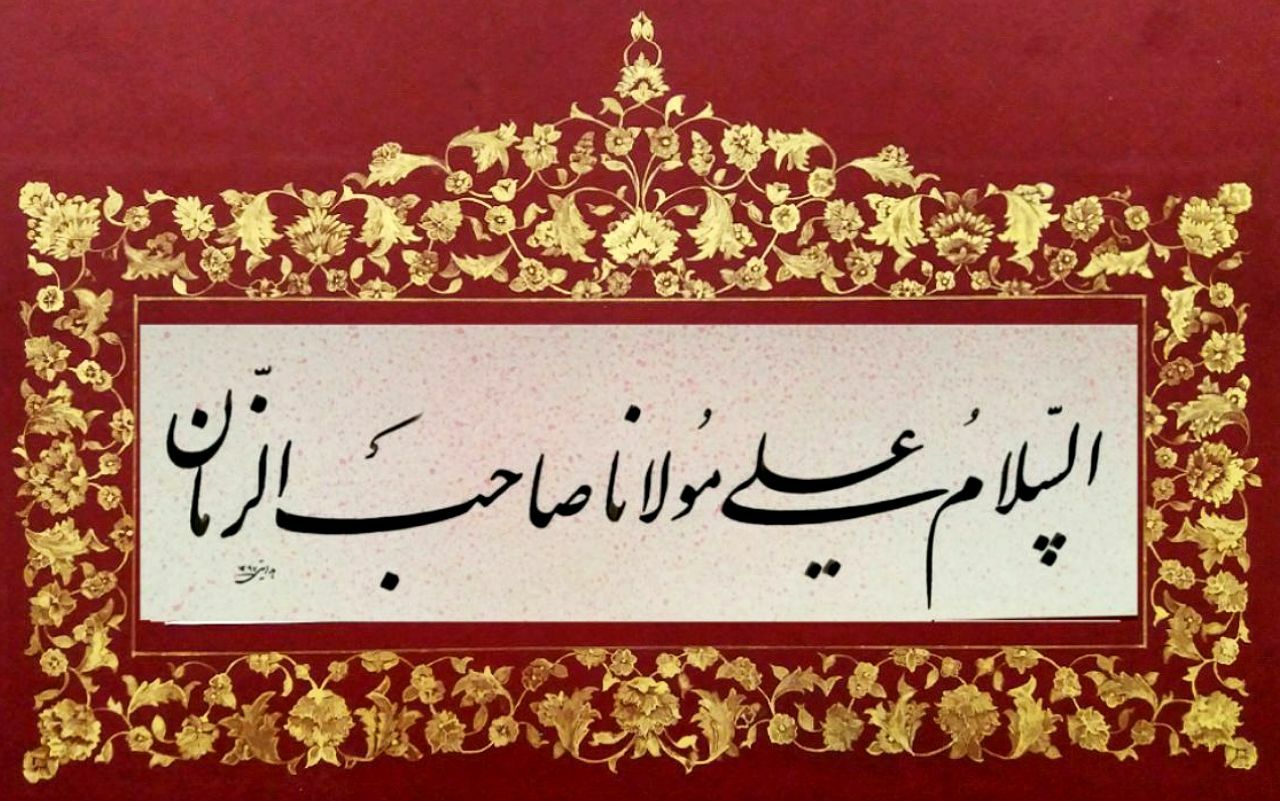 السّلامُ علي مولانا صاحبَ الزّمان